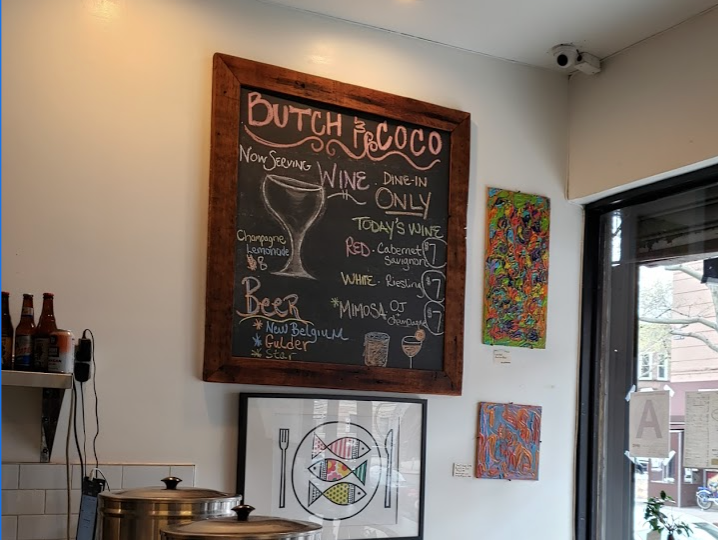 BUTCH & COCO
Now Serving
WINE
DINE-IN
ONLY
TODAY'S WINE
RED - Cabernet
Sauvignon
$7
Champagne
Lemonade
$8
WHITE - Riesling
$7
*MIMOSA OJ
+ Champagne
$7
Beer
* New Belgium
* Gulder
* Star
A